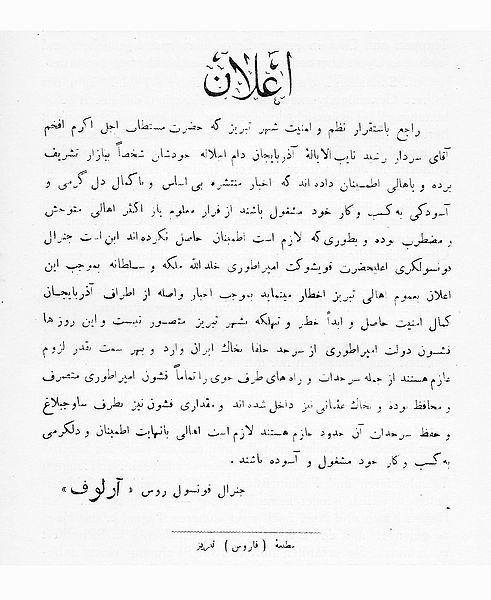 اعلان
راجع باستقرار نظم و امنیت شهر تبریز که حضرت مستطاب اجل اکرم افخم
آقای سردار رشید نایب‌الایالهٔ آذربایجان دام اجلاله خودشان شخصاً ببازار تشریف
برده و باهالی اطمینان داده‌اند که اخبار منتشره بی اساس و باکمال دل گرمی و
آسودگی به کسب و کار خود مشغول باشند از قرار معلوم باز اکثر اهالی متوحش
و مضطرب بوده و بطوری که لازم است اطمینان حاصل نکرده‌اند این است جنرال
قونسولگری اعلیحضرت قویشوکت امپراطوری خلدالله ملکه و سلطانه بموجب این
اعلان بعموم اهالی تبریز اخطار مینماید بموجب اخبار واصله از اطراف آذربایجان
کمال امنیت حاصل و ابداً خطر و تهلکه بشهر تبریز متصور نیست و این روز ها
قشون دولت امپراطوری از سرحد جلفا بخاک ایران وارد و بهر سمت بقدر لزوم
عازم هستند از جمله سرحدات و راه های طرف خوی را تماماً قشون امپراطوری متصرف
و محافظ بوده و بخاک عثمانی نیز داخل شده‌اند و مقداری قشون نیز بطرف ساوجبلاغ
و حفظ سرحدات آن حدود عازم هستند لازم است اهالی بانهایت اطمینان و دلگرمی
به کسب و کار خود مشغول و آسوده باشند .
جنرال قونسول روس « آرلوف »
مطبعهٔ ( فاروس ) تبریز